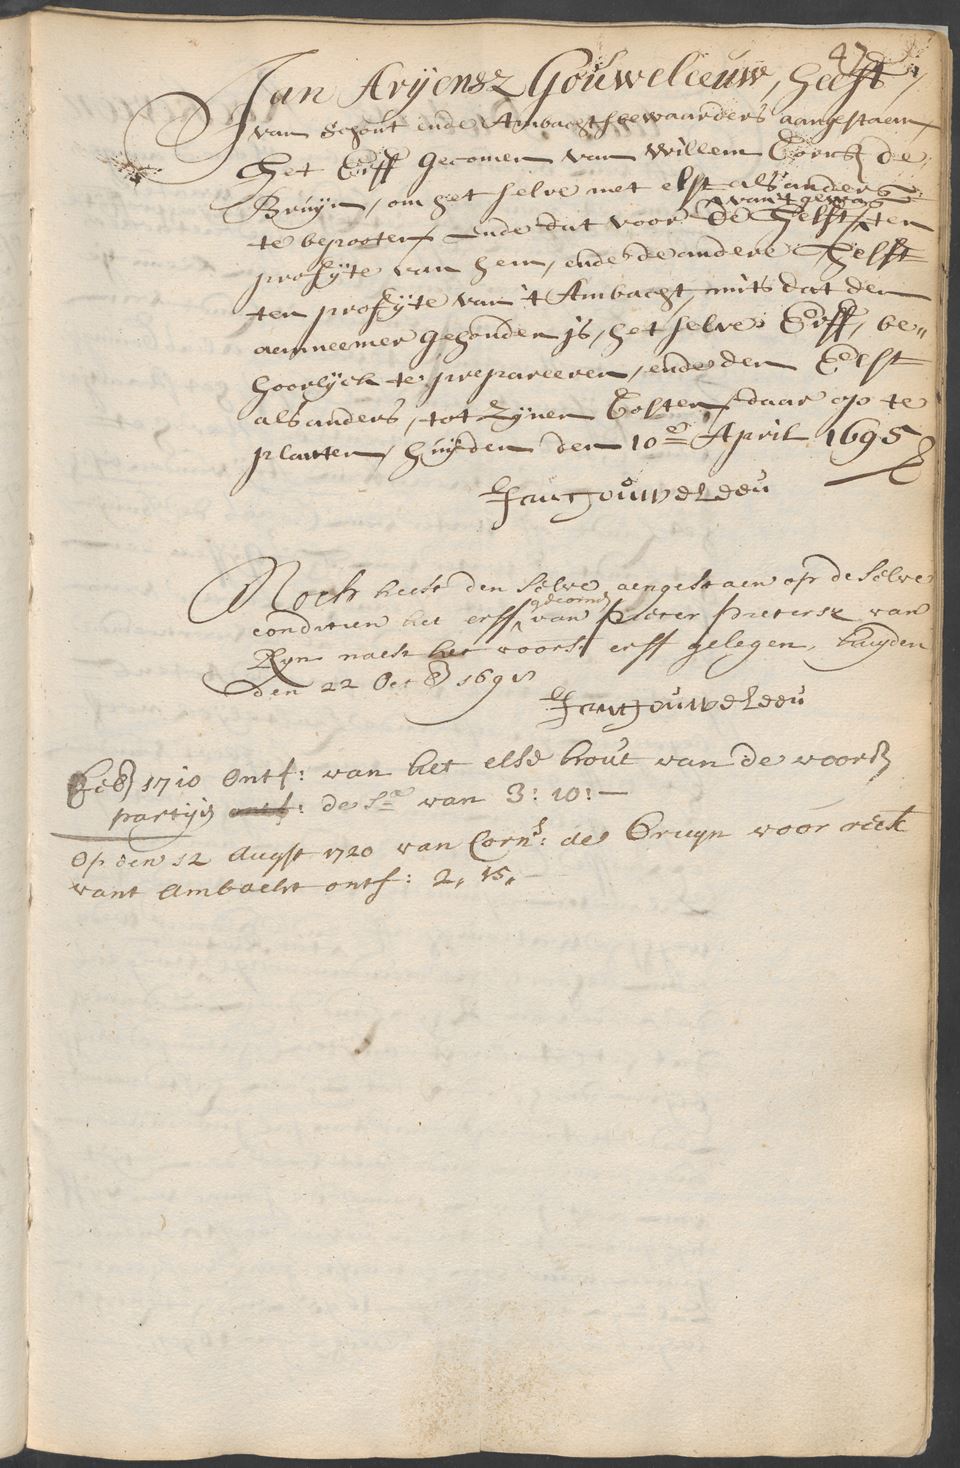 47
Jan Arijensz Gouweleeuw, heeft
van Schout ende Ambachtsbewaarders aangestaen
het Erff gecomen van Willem Cornsz de
Bruijn, om het selve met elst als anders
te bepooten, ende dat voor de helft van 't gewas ten
profijte van hem, ende de andere helft
ten profijte van 't Ambacht, mits dat den
aanneemer gehouden is, het selve Erff, be„
hoorlyck te prepareeren, ende den Elst
als anders, tot zijnen Costen, daar op te
planten, huijden den 10e April 1695
Jan gouweleeu
Noch heeft den selve aengestaen op de selve
conditien het erff gecomen van Pieter Pietersz van
Rijn naest het voorsz erff gelegen, huijden
den 22 Octob 169
Jan gouweleeu
Feb 1710 Ontf: van het else hout van de voorsz
partijen ontf: de Sa van 3: 10: —
Op den 12 Augst 1720 van Corns: de Bruyn voor
vant Ambacht ontf: 2„ 15„ —